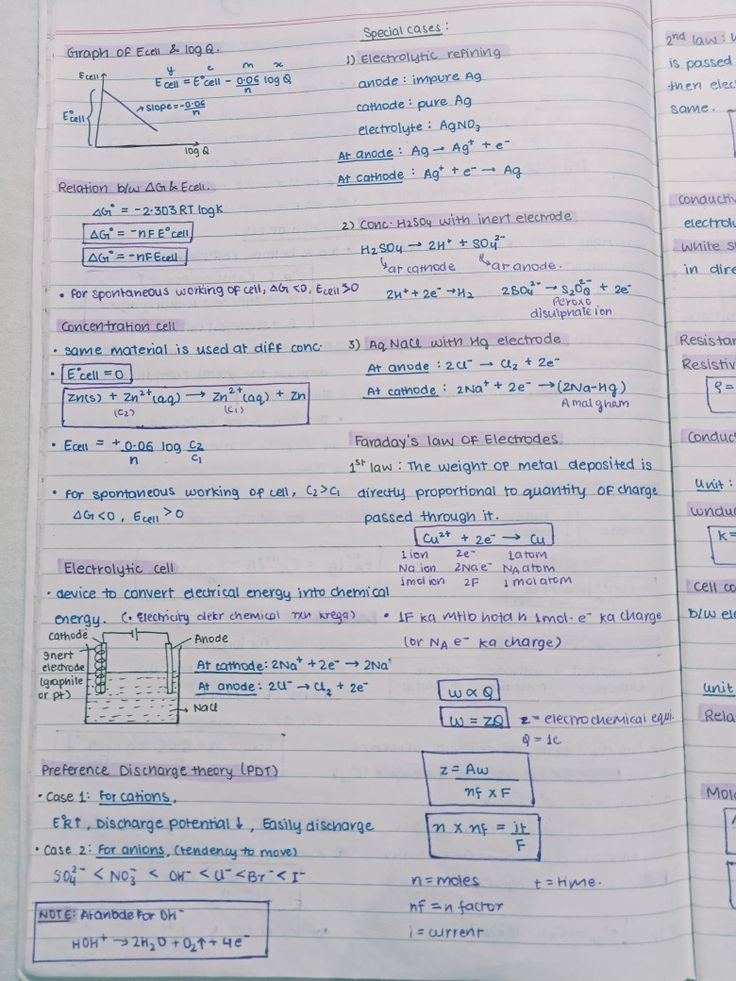 Graph of Ecell & log Q.
y c m x
Ecell = E°cell - 0.06/n log Q
Ecell
E°cell
slope = -0.06/n
log Q
Relation b/w ΔG & Ecell.
ΔG° = -2.303 RT log K
ΔG° = -nF E°cell
ΔG° = -nF Ecell
• for spontaneous working of cell, ΔG < 0, Ecell > 0
Concentration cell
• same material is used at diff conc.
• E°cell = 0
Zn(s) + Zn²⁺(aq) → Zn²⁺(aq) + Zn
(C2) (C1)
• Ecell = + 0.06/n log C2/C1
• for spontaneous working of cell, C2 > C1
ΔG < 0, Ecell > 0
Electrolytic cell
• device to convert electrical energy into chemical
energy. (• Electricity dekr chemical rxn krega)
cathode
Anode
Inert
electrode
(graphite
or pt)
NaCl
At cathode: 2Na⁺ + 2e⁻ → 2Na
At anode: 2Cl⁻ → Cl₂ + 2e⁻
Preference Discharge theory (PDT)
• Case 1: For cations,
E°R↑, Discharge potential ↓, Easily discharge
• Case 2: For anions, (tendency to move)
SO₄²⁻ < NO₃⁻ < OH⁻ < Cl⁻ < Br⁻ < I⁻
NOTE: At anode for OH⁻
4OH⁺ → 2H₂O + O₂↑ + 4e⁻
Special cases:
1) Electrolytic refining
anode: impure Ag
cathode: pure Ag
electrolyte: AgNO₃
At anode: Ag → Ag⁺ + e⁻
At cathode: Ag⁺ + e⁻ → Ag
2) Conc. H₂SO₄ with inert electrode
H₂SO₄ → 2H⁺ + SO₄²⁻
at cathode at anode.
2H⁺ + 2e⁻ → H₂ 2SO₄²⁻ → S₂O₈²⁻ + 2e⁻
Peroxo
disulphate ion
3) Aq NaCl with Hg electrode
At anode: 2Cl⁻ → Cl₂ + 2e⁻
At cathode: 2Na⁺ + 2e⁻ → (2Na-Hg)
Amalgham
Faraday's law of Electrodes
1st law: The weight of metal deposited is
directly proportional to quantity of charge
passed through it.
Cu²⁺ + 2e⁻ → Cu
1 ion 2e⁻ 1 atom
Na ion 2Na e⁻ NA atom
1 mol ion 2F 1 mol atom
• 1F ka mtlb hota h 1 mol e⁻ ka charge
(or NA e⁻ ka charge)
w ∝ Q
w = ZQ z = electrochemical equi.
Q = 1C
z = Aw / nf × F
n × nf = it/F
n = moles t = time.
nf = n factor
i = current
2nd law:
is passed
then elec
same.
Conductiv
electrolu
white s
in dire
Resistan
Resistiv
ρ =
Conduc
Unit:
k =
Cell co
b/w ele
unit
Rela